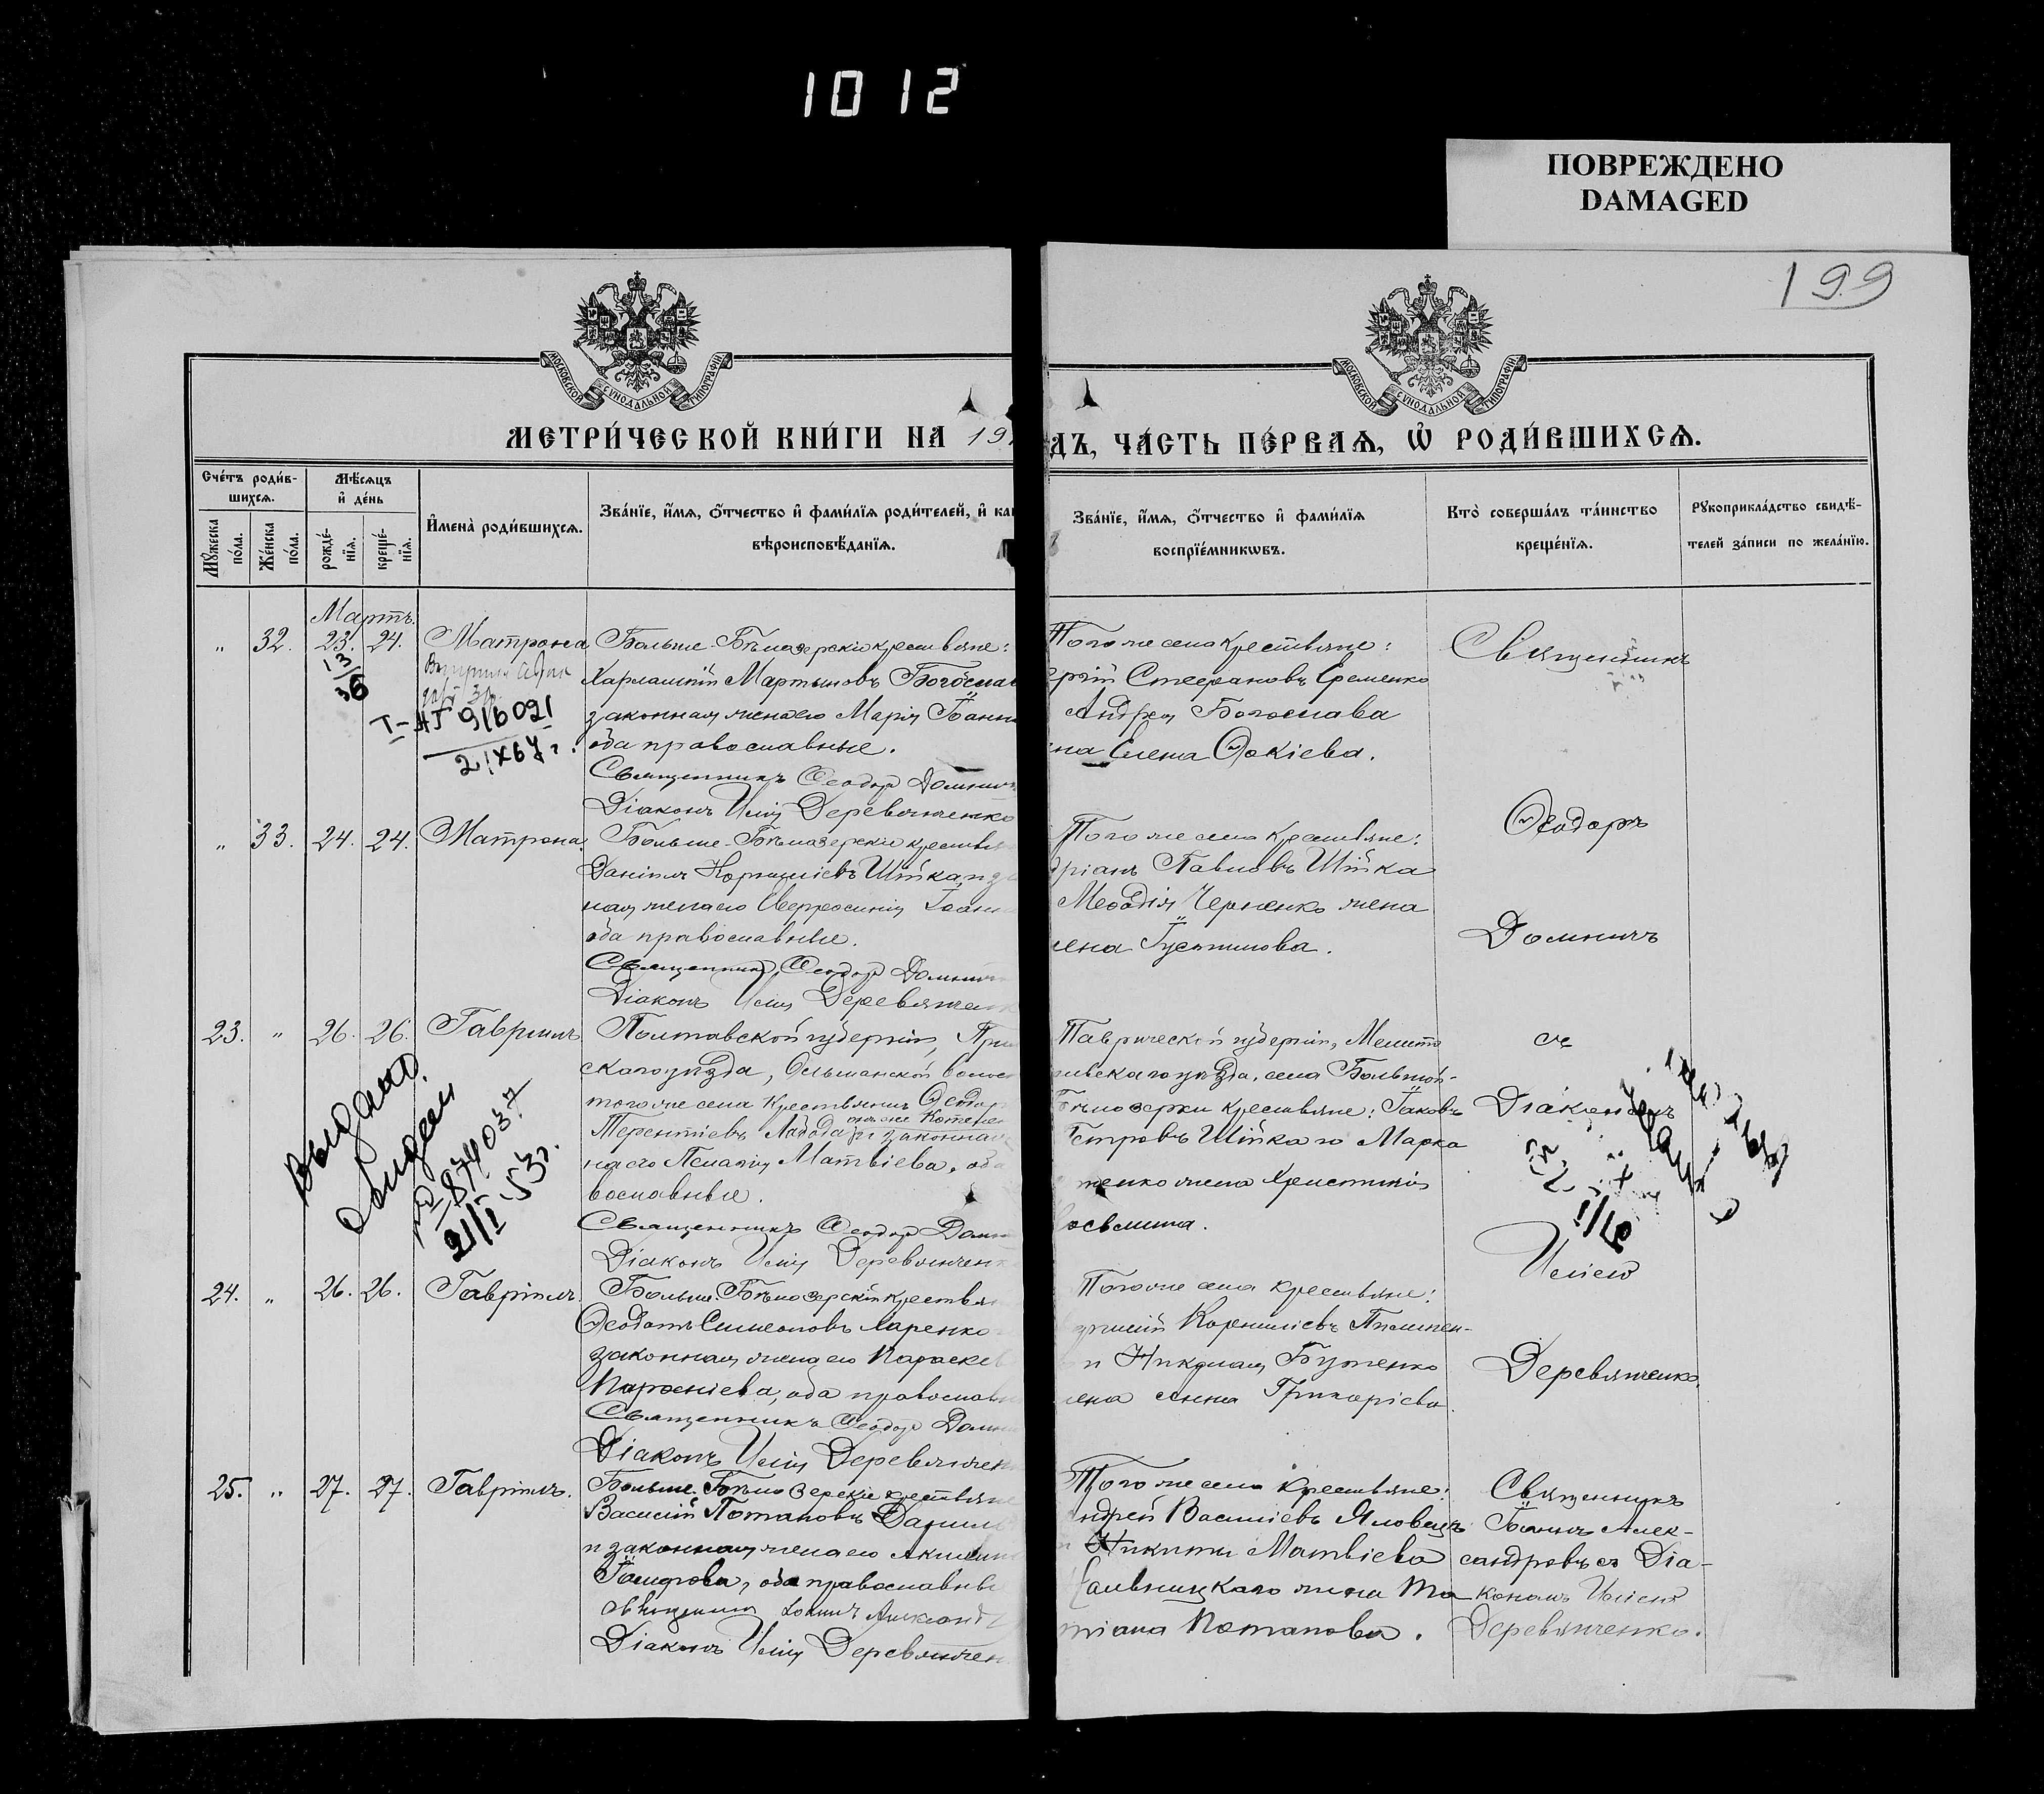 1012
ПОВРЕЖДЕНО
DAMAGED
199
МОСКОВСКОЙ СѴНОДАЛЬНОЙ ТИПОГРАФІИ
МОСКОВСКОЙ СѴНОДАЛЬНОЙ ТИПОГРАФІИ
МЕТРИ́ЧЕСКОЙ КНИ́ГИ НА 19
ДЪ, ЧА́СТЬ ПЕ́РВАѦ, Ѡ҆ РОДИ́ВШИХСѦ.
Сче́тъ роди́в-
шихсѧ.
Мѣ́сѧцъ
и҆ де́нь
Мꙋ́жеска по́ла.
Же́нска по́ла.
рожде́-
нїѧ.
креще́-
нїѧ.
И҆мена̀ роди́вшихсѧ.
Зва́нїе, и҆́мѧ, ѻ҆́тчество и҆ фами́лїѧ роди́телей, и҆ ка
вѣроисповѣ́данїѧ.
Зва́нїе, и҆́мѧ, ѻ҆́тчество и҆ фами́лїѧ
воспрїе́мникѡвъ.
Кто̀ соверша́лъ та́инство
креще́нїѧ.
Рꙋкоприкла́дство свидѣ́-
телей за́писи по жела́нїю.
Мартъ.
" 32. 23. 24. Матрона
Больше-Бѣлозерскіе крестьяне:
Харлампій Мартыновъ Богослав
законная жена его Марія Іоанн
оба православные.
Священникъ Ѳеодор Домнич
Діаконъ Илія Деревянченко
Того же села крестьяне:
Стефановъ Еременко
Андрея Богослава
на Елена Фокіева.
Священникъ
13
36
I-АП 916021
21 X 67 г.
" 33. 24. 24. Матрона.
Больше-Бѣлозерскіе крестья
Даніилъ Корниліевъ Шійка, и за
ная жена его Евфросинія Іоан
оба православные.
Священникъ Ѳеодор Домнич
Діаконъ Илія Деревянчен
Того же села крестьяне:
дріанъ Павловъ Шійка
Меѳодія Черненко жена
лена Густинова.
Ѳеодоръ
Домничъ
23. " 26. 26. Гавріилъ
Полтавской губерніи, При
скаго уѣзда, Ольшанской волос
того же села крестьянинъ Ѳеодор
Терентіевъ Ладода и законная
на его Пелагія Матвіева, оба
вославные.
Священникъ Ѳеодор Домн
Діаконъ Илія Деревянченк
Таврической губерніи, Мелито
польскаго уѣзда, села Большой-
Бѣлозерки крестьяне: Іаковъ
Петровъ Шійка и Марка
тенко жена Христина
осьмина.
съ
Діакономъ
Иліею
Выдано
№ 874037
21/I 53г.
24. " 26. 26. Гавріилъ.
Больше-Бѣлозерскіе крестья
Ѳеодотъ Симеоновъ Ларенко
законная жена его Параске
Парѳеніева, оба православн
Священникъ Ѳеодор Домн
Діаконъ Илія Деревянчен
Того же села крестьяне:
Корниліевъ Пилипен-
и Николая Буженко
жена Анна Григоріева.
Деревянченко.
25. " 27. 27. Гавріилъ.
Больше-Бѣлозерскіе крестьяне
Василій Потаповъ Данил
и законная жена его Акилина
оба православны
Священникъ Іоаннъ Александр
Діаконъ Илія Деревянчен
Того же села крестьяне:
ндрей Василіевъ Яловецъ
и Никиты Матвіева
Сальницкаго жена Та
тіана Потапова.
Священникъ
Іоаннъ Алек-
сандровъ съ Діа-
кономъ Иліею
Деревянченко.